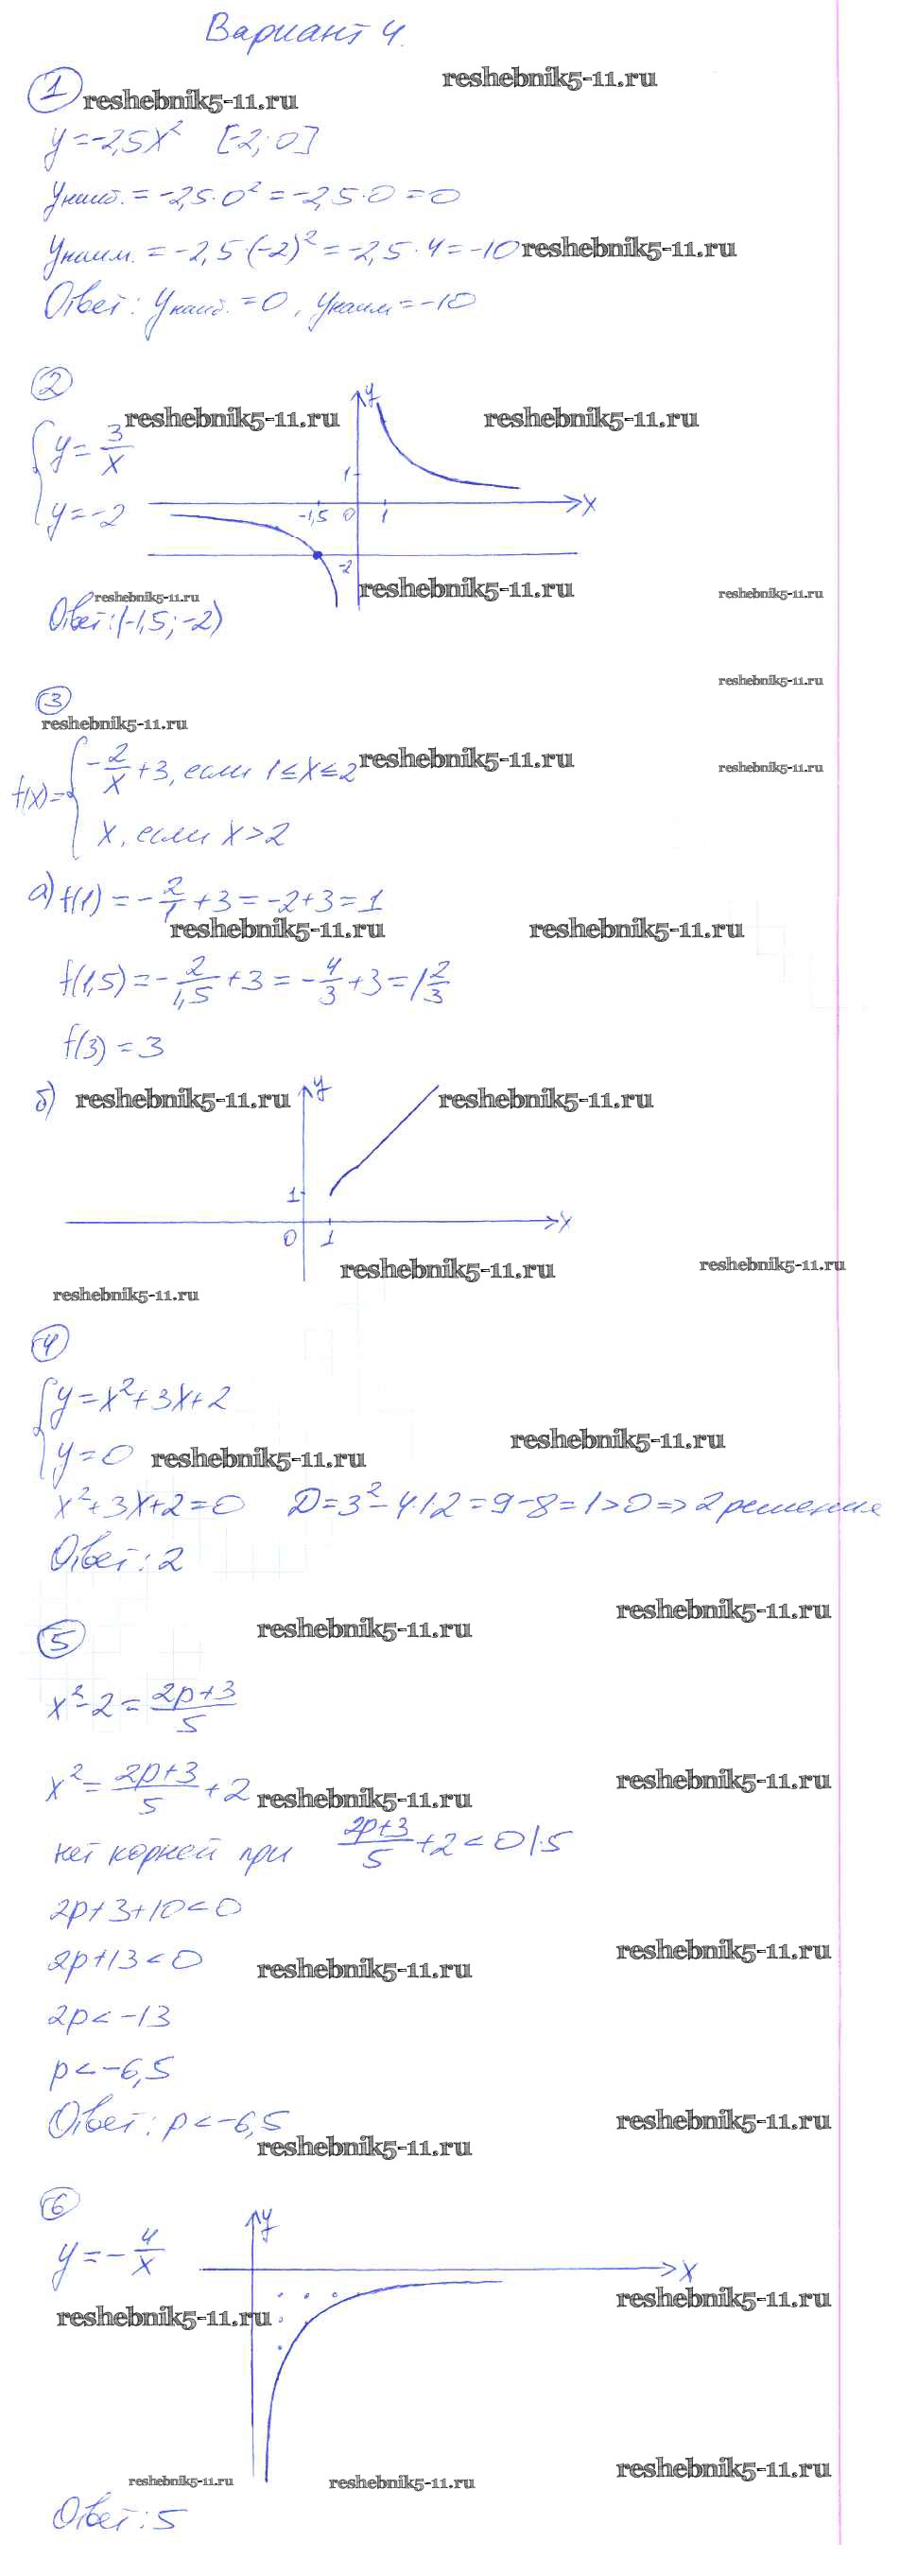 Вариант 4.
reshebnik5-11.ru
1 reshebnik5-11.ru
y=-2,5x² [-2; 0]
yнаиб.=-2,5·0²=-2,5·0=0
yнаим.=-2,5·(-2)²=-2,5·4=-10 reshebnik5-11.ru
Ответ: yнаиб.=0, yнаим=-10
2
y
reshebnik5-11.ru reshebnik5-11.ru
{ y=3/x
1
y=-2
-1,5 0 1 x
-2
reshebnik5-11.ru reshebnik5-11.ru reshebnik5-11.ru
Ответ: (-1,5; -2)
reshebnik5-11.ru
3
reshebnik5-11.ru
f(x)= { -2/x+3, если 1≤x≤2 reshebnik5-11.ru reshebnik5-11.ru
x, если x>2
а) f(1)=-2/1+3=-2+3=1
reshebnik5-11.ru reshebnik5-11.ru
f(1,5)=-2/1,5+3=-4/3+3=1 2/3
f(3)=3
б) reshebnik5-11.ru y reshebnik5-11.ru
1
0 1 x
reshebnik5-11.ru reshebnik5-11.ru
reshebnik5-11.ru
4
{ y=x²+3x+2
y=0 reshebnik5-11.ru reshebnik5-11.ru
x²+3x+2=0 D=3²-4·1·2=9-8=1>0=>2 решения
Ответ: 2
reshebnik5-11.ru
5 reshebnik5-11.ru
x²-2=(2p+3)/5
x²=(2p+3)/5+2 reshebnik5-11.ru reshebnik5-11.ru
нет корней при (2p+3)/5+2<0 |·5
2p+3+10<0
2p+13<0 reshebnik5-11.ru reshebnik5-11.ru
2p<-13
p<-6,5
Ответ: p<-6,5 reshebnik5-11.ru
reshebnik5-11.ru
6
y
y=-4/x
x
reshebnik5-11.ru reshebnik5-11.ru
reshebnik5-11.ru reshebnik5-11.ru reshebnik5-11.ru
Ответ: 5